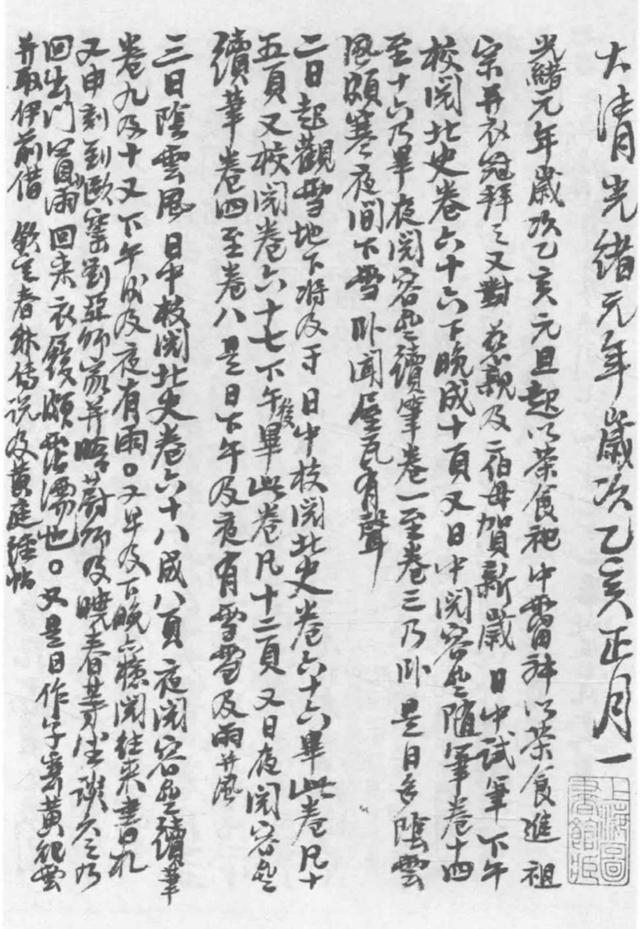 大清光緒元年歲次乙亥正月一
光緒元年歲次乙亥元旦起以茶食祀中霤神以茶食進 祖
宗并衣冠拜之又對 慈親及二伯母賀新歲 日中試筆下午
校閱北史卷六十六下晚成十頁又日中閱容齋隨筆卷十四
至十六乃畢夜閱容齋續筆卷一至卷三乃卧是日多陰雲
風頗寒夜間下雪卧聞屋瓦有聲
二日起觀雪地下將及寸日中校閱北史卷六十六畢此卷凡十
五頁又校閱卷六十七下午後畢此卷凡十二頁又日夜閱容齋
續筆卷四至卷八是日下午及夜有雪雪及雨并風
三日陰雲風日中校閱北史卷六十八成八頁夜閱容齋續筆
卷九及十又下午後及夜有雨○又早及下晚檢閱往來書札
又申刻到歐窰劉亞師家并晤蔚師及曉春等坐談久之乃
回出門冒雨回來衣履頗霑濡也○又是日作字寄黃
并取伊前借 欽定春秋傳說及黃庭經帖
上海圖書館藏